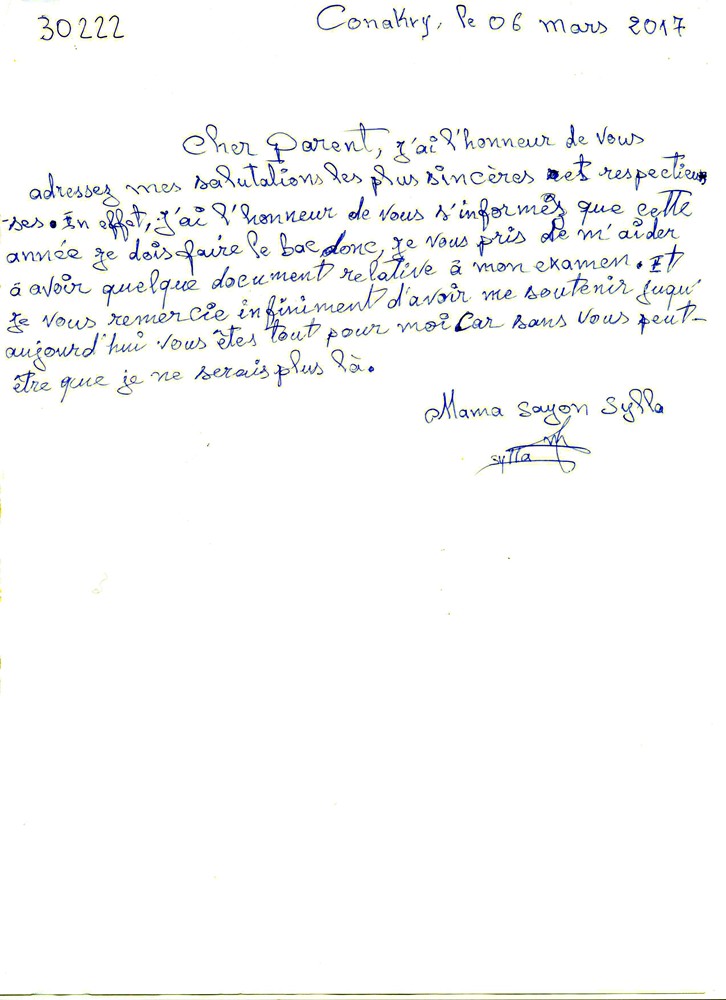 30222
Conakry, le 06 mars 2017
Cher Parent, j'ai l'honneur de vous
adressez mes salutations les plus sincères et respectieu
-ses. En effet, j'ai l'honneur de vous s'informés que cette
année je dois faire le bac donc, je vous pris de m'aider
à avoir quelque document relative à mon examen. Et
je vous remercie infiniment d'avoir me soutenir juqu'
aujourd'hui vous êtes tout pour moi car sans vous peut-
être que je ne serais plus là.
Mama Sayon Sylla
sylla